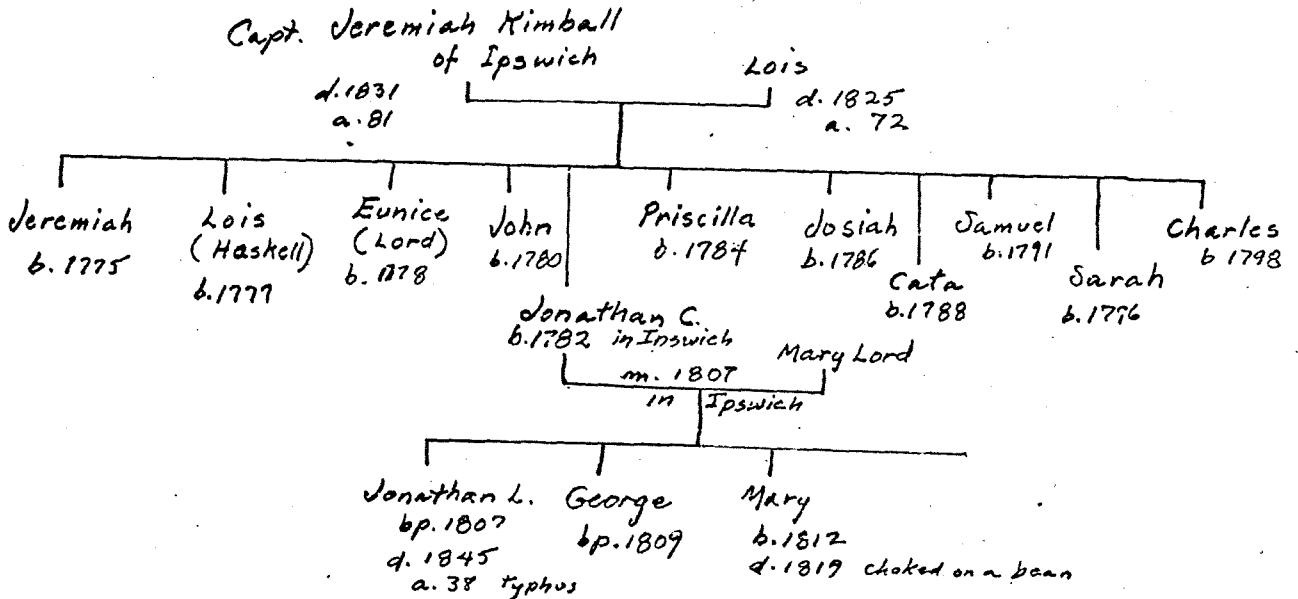 Capt. Jeremiah Kimball
of Ipswich
d. 1831
a. 81
Lois
d. 1825
a. 72
Jeremiah
b. 1775
Lois
(Haskell)
b. 1777
Eunice
(Lord)
b. 1778
John
b. 1780
Jonathan C.
b. 1782 in Ipswich
Priscilla
b. 1784
Josiah
b. 1786
Cata
b. 1788
Samuel
b. 1791
Sarah
b. 1796
Charles
b 1798
Mary Lord
m. 1807
in Ipswich
Jonathan L.
bp. 1807
d. 1845
a. 38 typhus
George
bp. 1809
Mary
b. 1812
d. 1819 choked on a bean